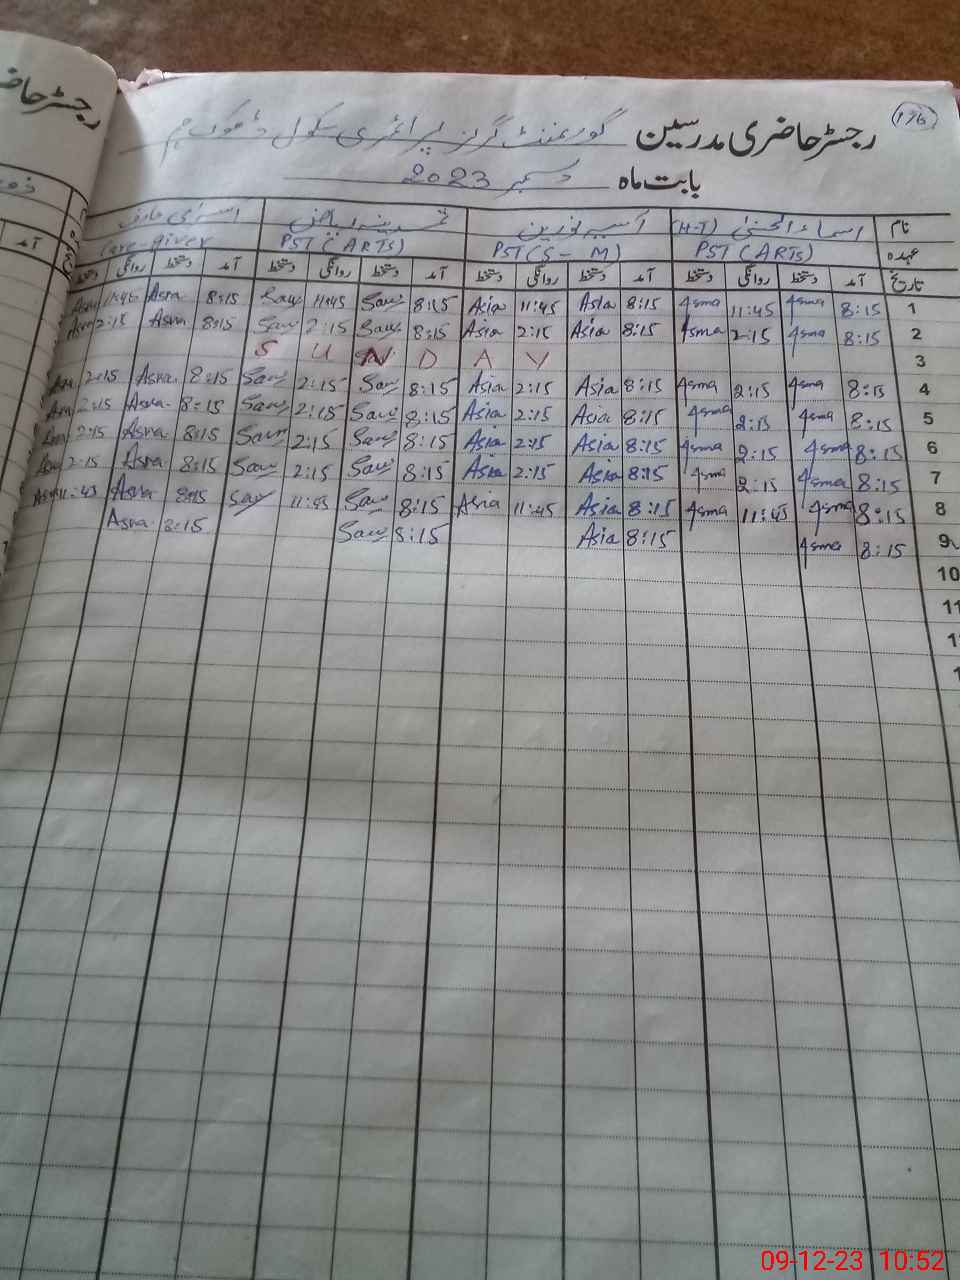 176
رجسٹر حاضری مدرسین گورنمنٹ گرلز پرائمری سکول ڈھوک
بابت ماہ دسمبر 2023
نام اسماء الحسنٰی (H-T) آسیہ نورین
عہدہ PST (ARTs) PST (S-M) PST (ARTS) Care-giver
تاریخ آمد دستخط روانگی دستخط آمد دستخط روانگی دستخط آمد دستخط روانگی دستخط آمد دستخط روانگی دستخط
1 8:15 Asma 11:45 Asma 8:15 Asia 11:45 Asia 8:15 11:45 8:15 Asra 11:45
2 8:15 Asma 2:15 Asma 8:15 Asia 2:15 Asia 8:15 2:15 8:15 Asra 2:15
3 S U N D A Y
4 8:15 Asma 2:15 Asma 8:15 Asia 2:15 Asia 8:15 2:15 8:15 Asra 2:15
5 8:15 Asma 2:15 Asma 8:15 Asia 2:15 Asia 8:15 2:15 8:15 Asra 2:15
6 8:15 Asma 2:15 Asma 8:15 Asia 2:15 Asia 8:15 2:15 8:15 Asra 2:15
7 8:15 Asma 2:15 Asma 8:15 Asia 2:15 Asia 8:15 2:15 8:15 Asra 2:15
8 8:15 Asma 11:45 Asma 8:15 Asia 11:45 Asia 8:15 11:45 8:15 Asra 11:45
9 8:15 Asma 8:15 Asia 8:15 8:15 Asra
10
11
09-12-23 10:52